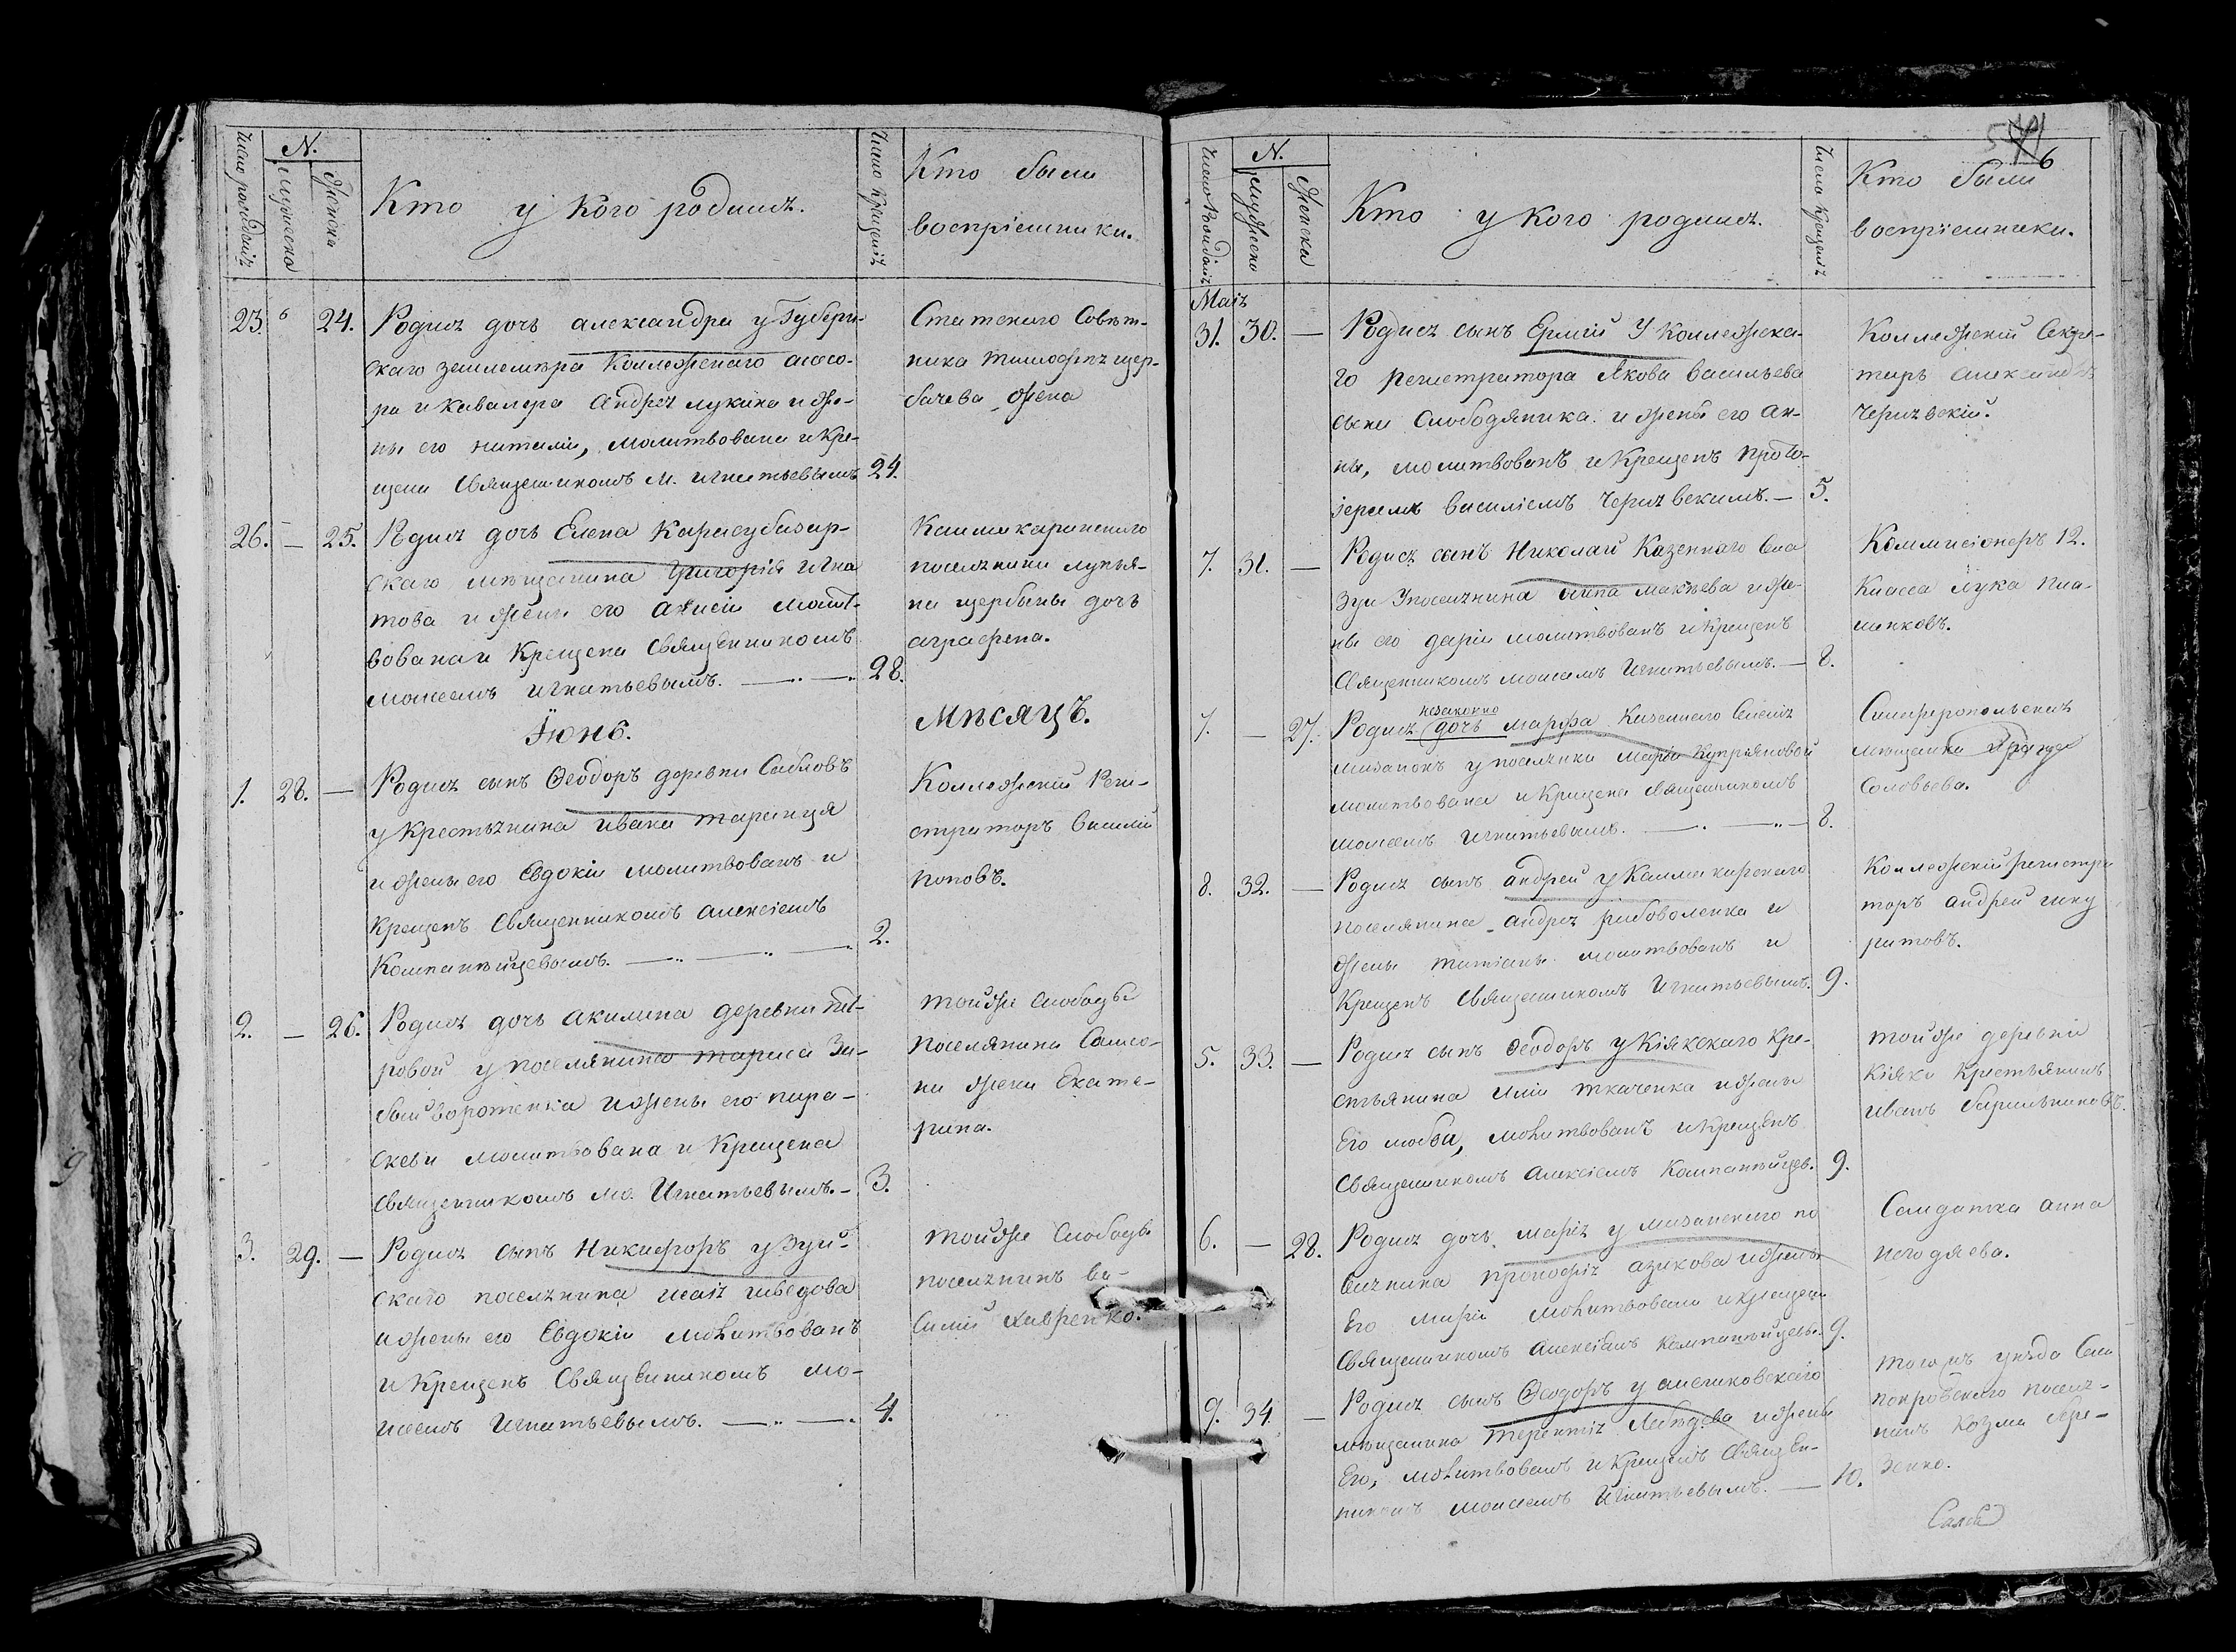 Число рожденія
N.
Мужеска
Женска
Кто у кого родился.
Число крещенія
Кто были
воспріемники.
23.
24.
Родися дочь александра у Губерн-
скаго землемѣра Коллежскаго ассесо-
ра и Кавалера Андрея лукина и же-
ны его наталіи, молитвована и кре-
щена Священникомъ М. игнатьевымъ
24.
Статскаго Совѣт-
ника тимофея щер-
бачева жена
26. — 25.
Родися дочь Елена Карасубазар-
скаго мѣщанина Григорія игна
това и жены его
вована и Крещена Священникомъ
моисеемъ игнатьевымъ.
28.
поселянина лукья-
на щербины дочь
аграфена.
Іюнь.
мѣсяцъ.
1. 28. —
Родися сынъ Ѳеодоръ деревни Сабловъ
у Крестьянина ивана таранця
и жены его Евдокіи молитвованъ и
крещенъ Священникомъ алексіемъ
Компанѣйцевымъ.
2.
Коллежскій Реги-
страторъ василій
поповъ.
2. — 26.
Родися дочь акилина деревни
ровой у поселянина тараса За-
и жены его пара-
скевы молитвована и Крещена
Священникомъ мо. Игнатьевымъ.
3.
тойже слободы
поселянина Самсо-
на жена Екате-
рина.
3. 29. —
Родися сынъ Никифоръ у Зуй-
скаго поселянина исаія шведова
и жены его Евдокіи молитвованъ
и Крещенъ Священникомъ мо-
исеемъ Игнатьевымъ.
4.
тойже слободы
поселянинъ ва-
силій лавренко.
6
Число рожденія
N.
Мужеско
Женска
Кто у кого родился.
Числа крещенія
Кто были
воспріемники.
Маія
31. 30. —
Родися сынъ Ермій У Коллежска-
го регистратора Якова васильева
сына Слободяника и жены его ан-
ны, молитвованъ и Крещенъ прото-
іереемъ василіемъ Чернявскимъ.
5.
Коллежскій Секре-
тарь александръ
Чернявскій.
7. 31. —
Родися сынъ Николай Казеннаго Села
Зуи У поселянина макѣева и же-
ны его даріи молитвованъ и крещенъ
Священникомъ моисеемъ Игнатьевымъ.
8.
Коммисіонеръ 12.
Класса лука
7. — 27.
незаконно
Родися дочь марфа Казеннаго Селенія
мазанокъ у поселянки маріи Купріяновой
молитвована и крещена священникомъ
моисеемъ Игнатьевымъ.
8.
Симферопольская
мѣщанка
Соловьева.
8. 32. —
Родися сынъ андрей у
поселянина андрея рыбоволенка и
жены татіаны молитвованъ и
Крещенъ Священникомъ Игнатьевымъ.
9.
Коллежскій регистра
торъ андрей
5. 33. —
Родися сынъ Ѳеодоръ у Кіякскаго Кре-
стьянина иліи ткаченка и жены
Его любви, молитвованъ и крещенъ
Священникомъ Алексіемъ Компанѣйцев.
9.
тойже деревни
Кіяка крестьянинъ
иванъ
6. — 28.
Родися дочь марія у мазанскаго по
селянина прокофія азикова и жены
Его маріи молитвована и крещена
Священникомъ Алексіемъ Компанѣйцевъ.
9.
Солдатка анна
негодяева.
9. 34. —
Родися сынъ Ѳеодоръ у алешковскаго
мѣщанина терентія лебедева и жены
Его, молитвованъ и Крещенъ Священ-
никомъ моисеемъ Игнатьевымъ.
10.
тогожъ уѣзда Села
покровскаго поселя-
нинъ козма